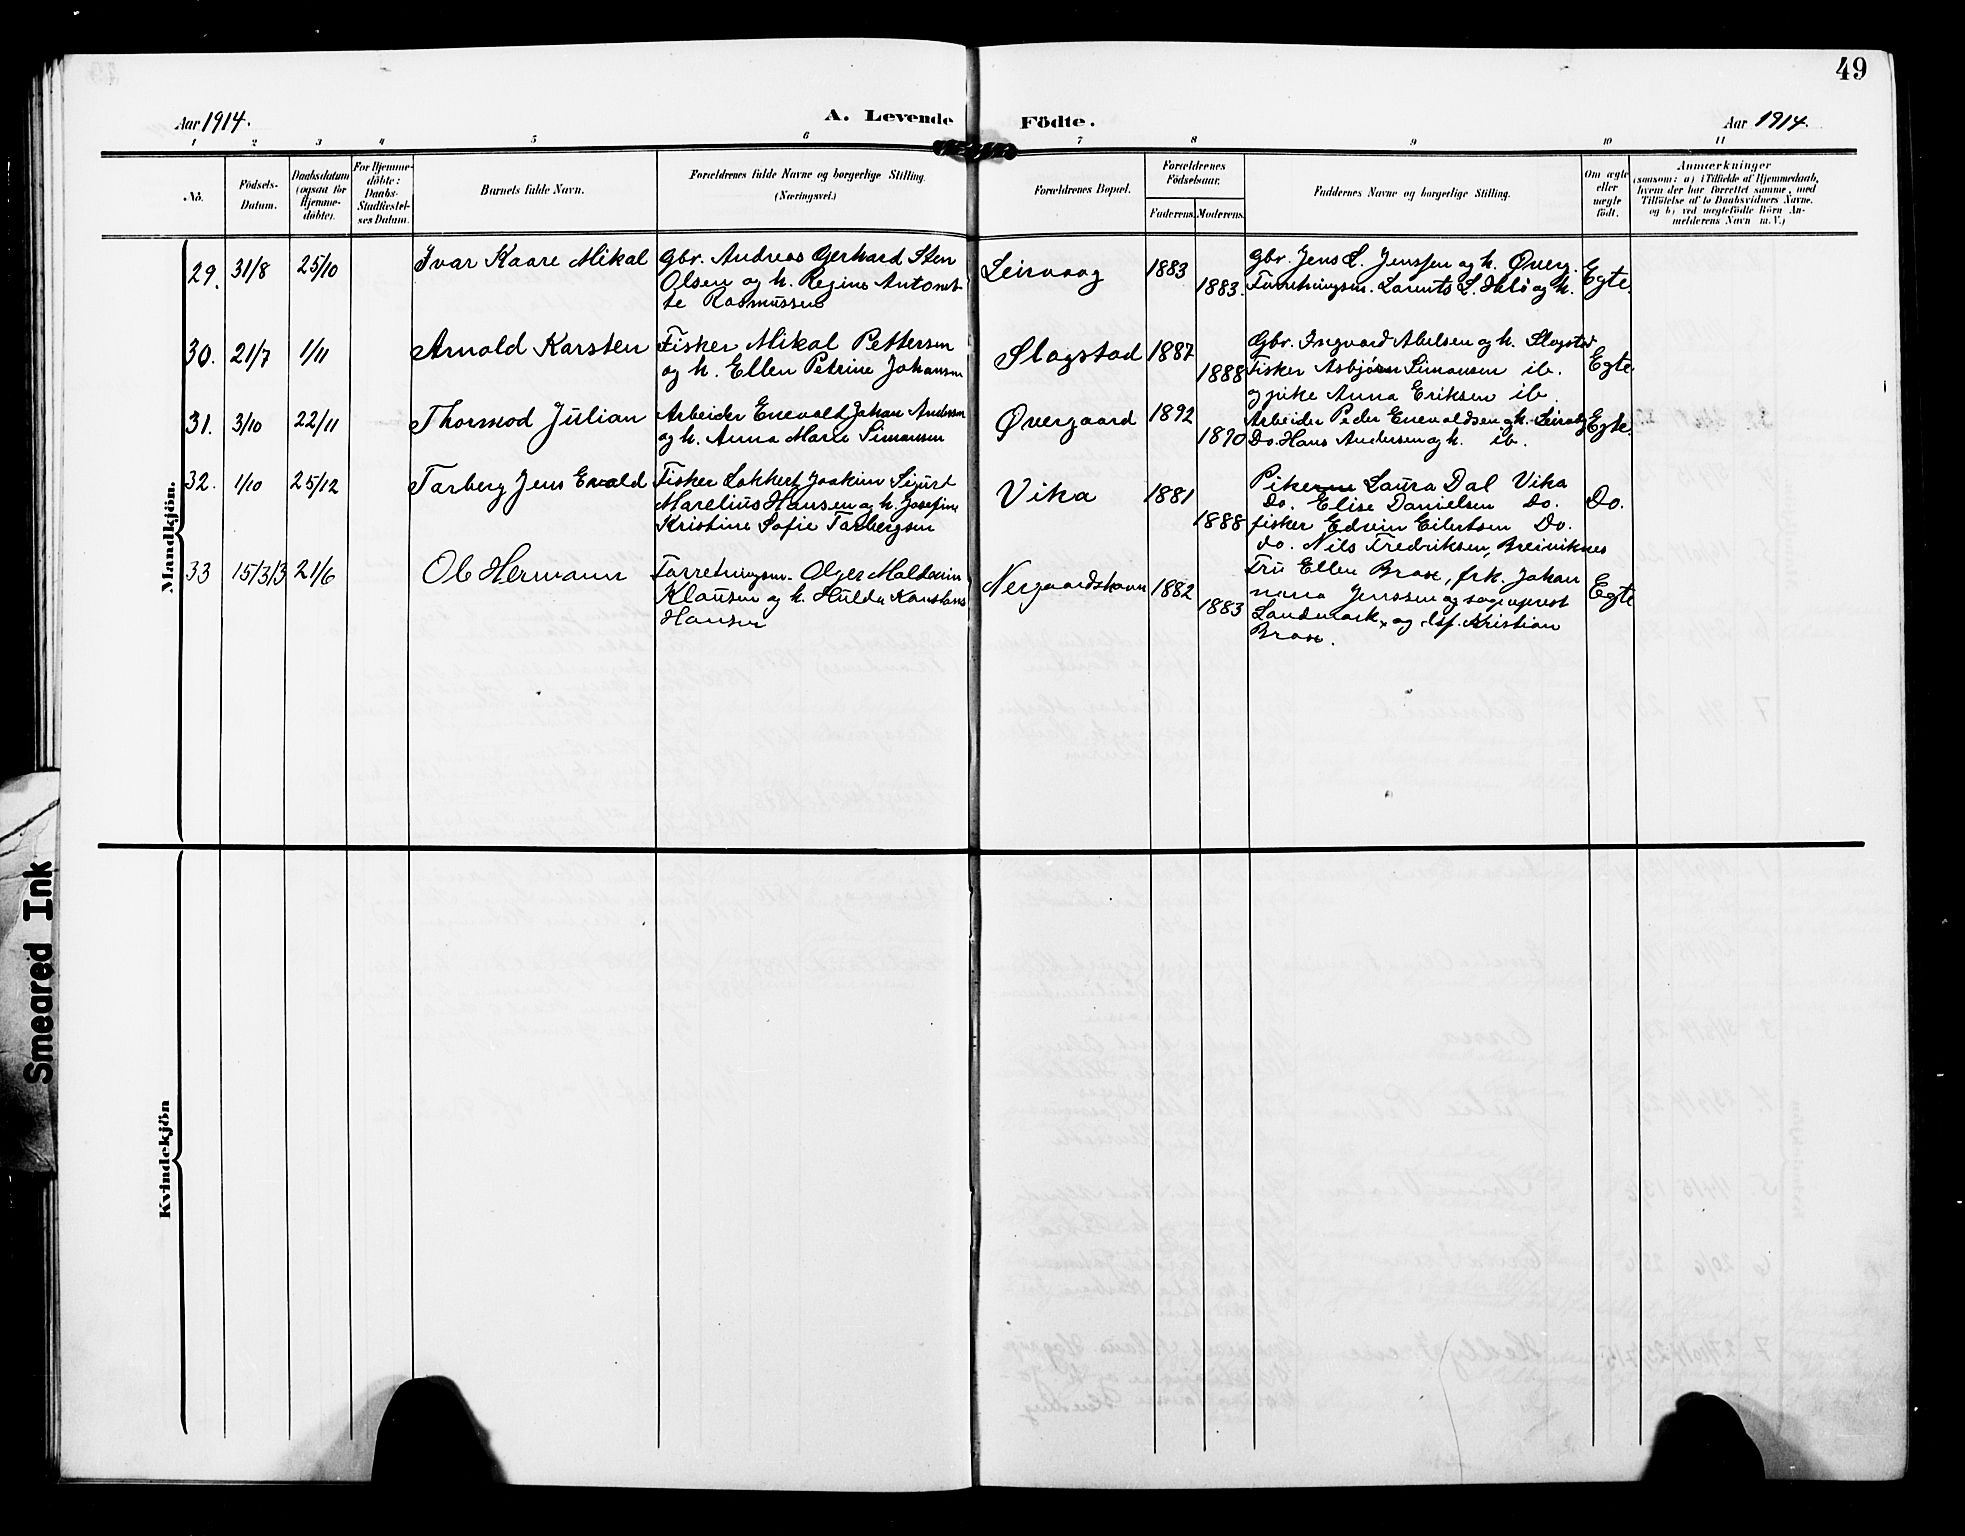 49
Aar 1914.
A. Levende Födte.
Aar 1914.
1 2 3 4 5 6 7 8 9 10 11
No.
Födsels-
Datum.
Daabsdatum
(ogsaa for
Hjemme-
döbte).
For Hjemme-
döbte:
Daabs-
Stadfæstel-
ses Datum.
Barnets fulde Navn.
Forældrenes fulde Navne og borgerlige Stilling.
(Næringsvei.)
Forældrenes Bopæl.
Forældrenes
Födselsaar.
Faderens.
Moderens.
Faddernes Navne og borgerlige Stilling.
Om ægte
eller
uægte
födt.
Anmærkninger
(saasom: a) i Tilfælde af Hjemmedaab,
hvem der har forrettet samme, med
Tilföielse af to Daabsvidners Navne.
og b) ved uægtefödte Börn An-
melderens Navn m. V.)
Mandkjön.
29. 31/8 25/10 Ivar Kaare Mikal
Gbr. Andreas Gerhard Sten
Olsen og h. Regine Antonet-
te Rasmussen
Leirvaag 1883 1883.
Gbr. Jens L. Jenssen og h. Øverg.
Forretningsm. Lorents L. og h.
Egte.
30. 21/7 1/11 Arnold Karsten
Fisker Mikal Pettersen
og h. Ellen Petrine Johansen
Slagstad 1887 1888
Gbr. Ingvard Abelsen og h. Slagstad
Fisker Asbjørn Simonsen ib.
og pike Anna Eriksen ib.
Egte
31. 3/10 22/11 Thormod Julian
Arbeider Enevald Johan Andersen
og h. Anna Marie Simonsen
Øvergaard 1892 1890
Arbeider Peder Enevaldsen og h. Leirvaag
Do. Hans Andersen og h. ib.
Egte.
32. 1/10 25/12 Torberg Jens Evald
Fisker Lokkert Joakim Sigurt
Marelius Hansen og h. Josefine
Kristine Sofie Torbergsen
Vika 1881 1888
Pikerne Laura Dal Vika
Do. Elise Danielsen Do.
fisker Edvin Eilertsen Do.
do. Nils Fredriksen, Breiviknes
Do.
33 15/3/3 21/6 Ole Hermann
Forretningsm. Olger Maldemin
Klausen og h. Hulda Konstanse
Hansen
Nergaardshavn 1882 1883
Fru Ellen Brox, frk. Johan
nona Jenssen og sogneprest
Landmark, og Kristian
Brox.
Egte
Kvindekjön
Smeared Ink